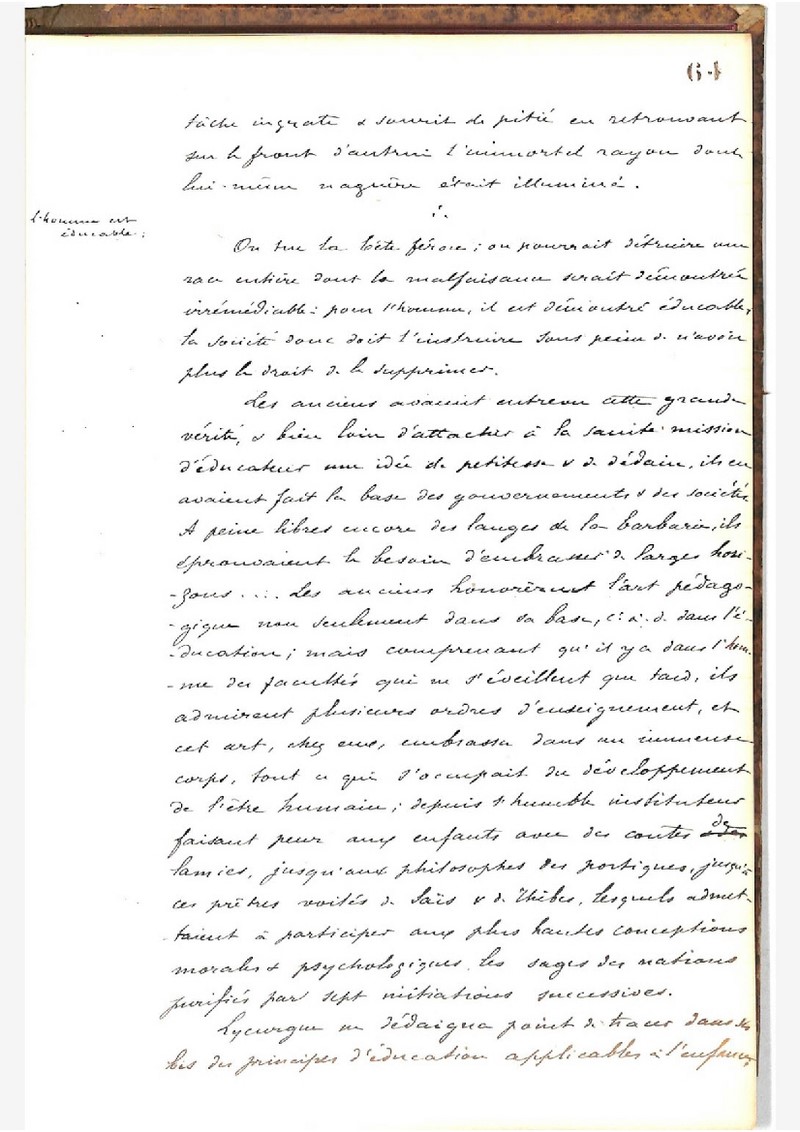 64
tâche ingrate & sourit de pitié en retrouvant
sur le front d'autrui l'immortel rayon dont
lui-même naguère était illuminé.
l'homme est
éducable;
On tue la bête féroce; on pourrait détruire une
race entière dont la malfaisance serait démontrée
irrémédiable: pour l'homme, il est démontré éducable,
la société donc doit l'instruire sous peine de n'avoir
plus le droit de le supprimer.
Les anciens avaient entrevu cette grande
vérité, & bien loin d'attacher à la sainte mission
d'éducateur une idée de petitesse & de dédain, ils en
avaient fait la base des gouvernements & des sociétés
A peine libres encore des langes de la barbarie, ils
éprouvaient le besoin d'embrasser de larges hori-
-zons .... Les anciens honorèrent l'art pédago-
-gique non seulement dans sa base, c. à. d. dans l'é-
-ducation; mais comprenant qu'il y a dans l'hom-
-me des facultés qui ne s'éveillent que tard, ils
admirent plusieurs ordres d'enseignement, et
cet art, chez eux, embrassa dans un immense
corps, tout ce qui s'occupait du développement
de l'être humain; depuis l'humble instituteur
faisant peur aux enfants avec des contes de
lamies, jusqu'aux philosophes des portiques, jusqu'à
ces prêtres voilés de Saïs & de Thèbes, lesquels admet-
-taient à participer aux plus hautes conceptions
morales & psychologiques les sages des nations
purifiés par sept initiations successives.
Lycurgue ne dédaigna point de tracer dans ses
lois des principes d'éducation applicables à l'enfance,